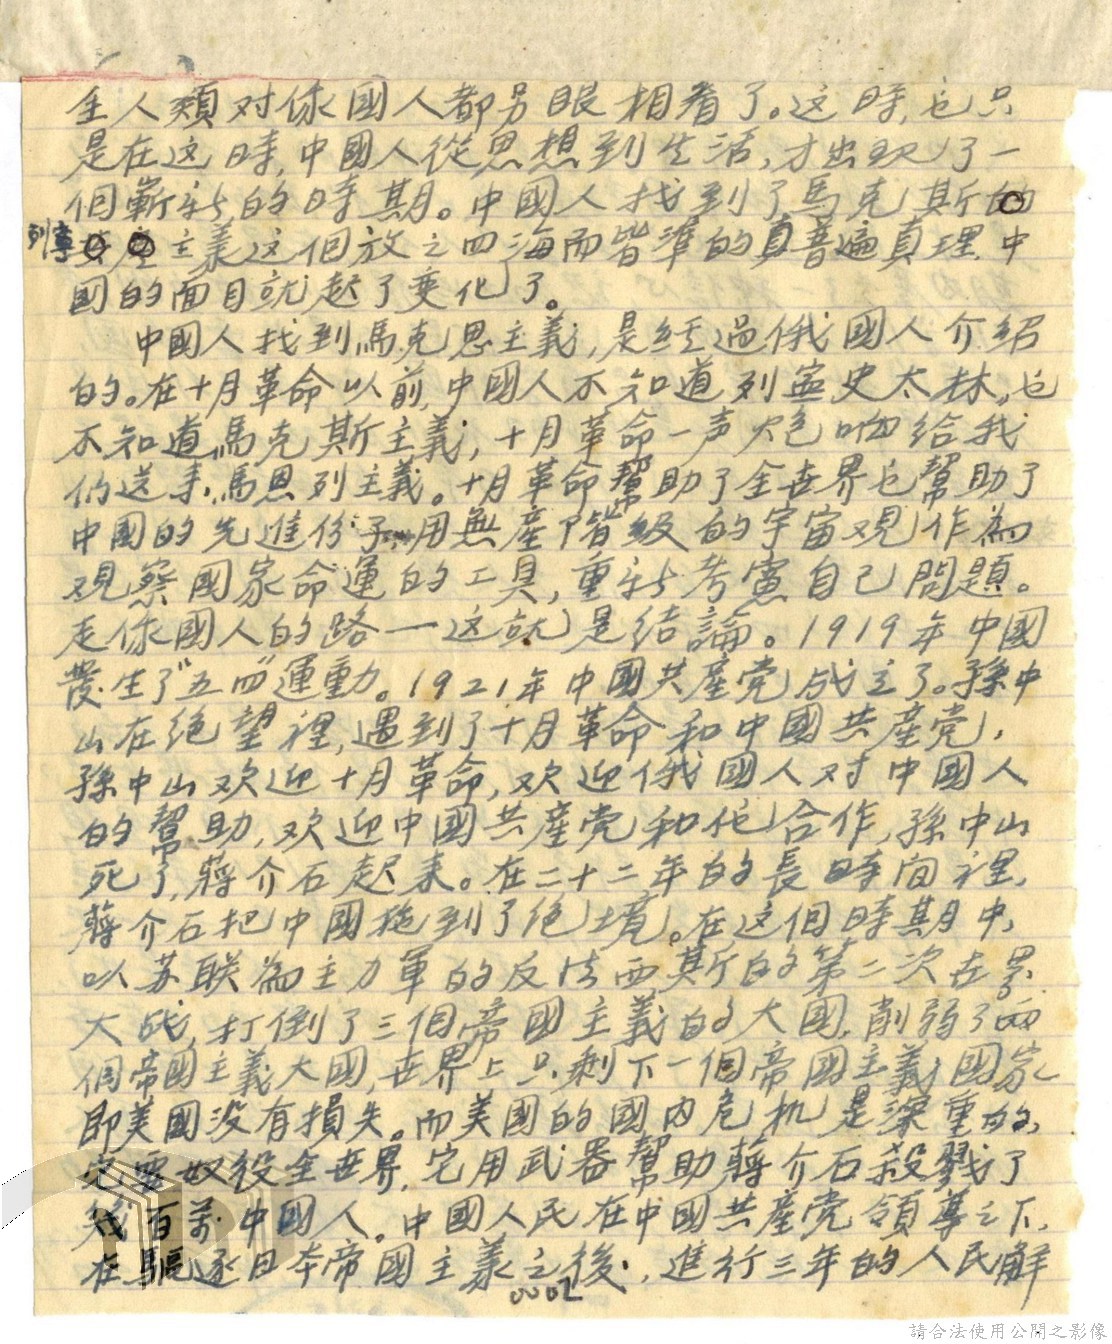 全人類对俄國人都另眼相看了。这時,也只
是在这時,中國人從思想到生活,才出现了一
個嶄新的時期。中國人找到了馬克斯的
列寧
共產主義这個放之四海而皆準的真普遍真理.中
國的面目就起了变化了。
中國人找到馬克思主義,是經過俄國人介紹
的。在十月革命以前,中國人不知道列寧史太林,也
不知道馬克斯主義,十月革命一声炮响給我
们送来馬恩列主義。十月革命幫助了全世界也幫助了
中國的先進份子,用無產階級的宇宙观作為
观察國家命運的工具,重新考慮自己問題。
走俄國人的路一这就是结論。1919年中國
發生了"五四"運動。1921年中國共產党成立了。孫中
山在绝望裡,遇到了十月革命和中國共產党,
孫中山欢迎十月革命,欢迎俄國人对中國人
的幫助,欢迎中國共產党和他合作,孫中山
死了,蔣介石起来。在二十二年的長時间裡,
蔣介石把中國拖到了绝境。在这個時期中,
以苏联為主力軍的反法西斯的第二次世界
大战,打倒了三個帝國主義的大國,削弱了兩
個帝國主義大國,世界上只剩下一個帝國主義國家
即美國没有損失。而美國的國内危机是深重的,
它要奴役全世界,它用武器幫助蔣介石殺戮了
幾百萬中國人。中國人民在中國共產党領導之下,
在驅逐日本帝國主義之後,進行三年的人民解
0002
請合法使用公開之影像